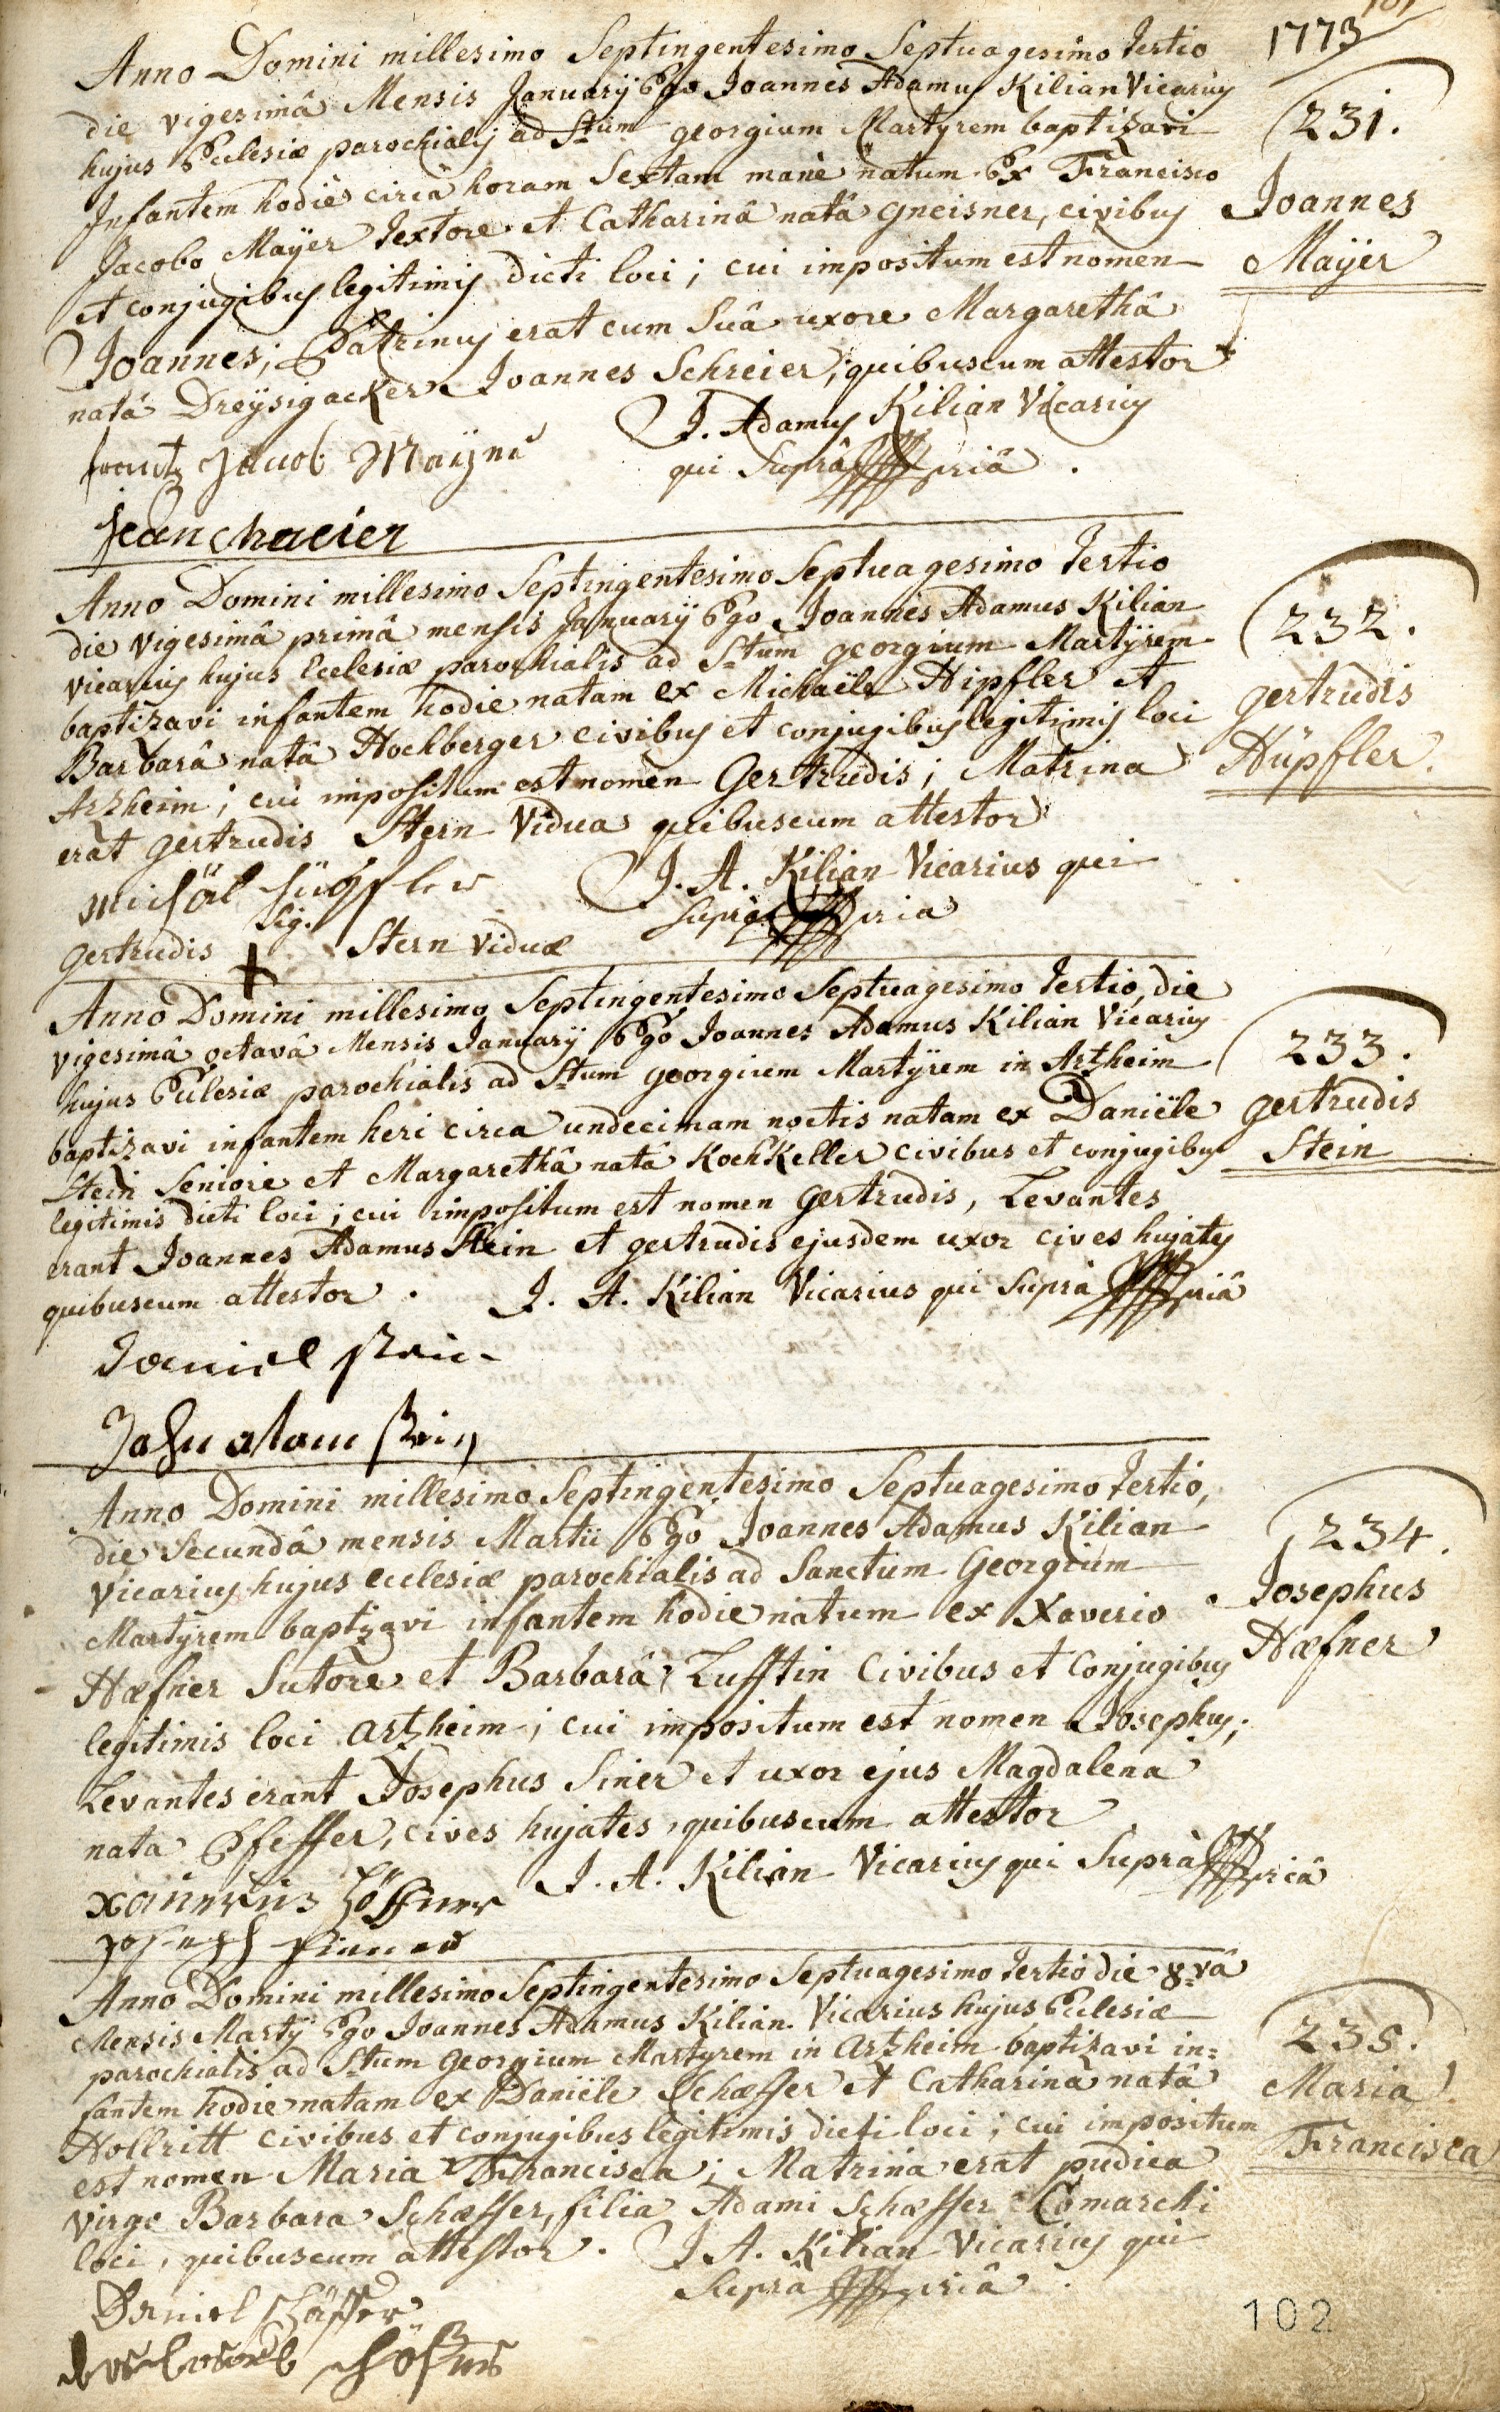 1773
Anno Domini millesimo Septingentesimo Septuagesimo tertio
die vigesimâ Mensis Januarÿ Ego Joannes Adamus Kilian Vicarius
hujus Ecclesiæ parochialis ad Stum georgium Martyrem baptizavi
Infantem hodiè circà horam Sextam manè natum Ex Francisco
Jacobo Maÿer textore et Catharinâ natâ gneisner, civibus
et conjugibus legitimis dicti loci; cui impositum est nomen
Joannes; Patrinus erat cum Suâ uxore Margarethâ
natâ Dreÿsigacker Joannes Schreier; quibuscum attestor
J. Adamus Kilian Vicarius
qui Suprâ priâ.
frantz Jacob Maÿer
jean chreier
231.
Joannes
Maÿer
Anno Domini millesimo Septingentesimo Septuagesimo tertio
die vigesimâ primâ mensis Januarÿ Ego Joannes Adamus Kilian
vicarius hujus Ecclesiæ parochialis ad Stum georgium Martÿrem
baptizavi infantem hodie natam ex Michaële Hipfler et
Barbarâ natâ Hochberger civibus et conjugibus legitimis loci
Arzheim; cui impositum est nomen Gertrudis; Matrina
erat gertrudis Stern Vidua quibuscum attestor
J. A. Kilian Vicarius qui
suprà pria
Michäl hüpfler
Sig.
gertrudis + Stern viduæ
232.
gertrudis
Hüpfler.
Anno Domini millesimo Septingentesimo Septuagesimo tertio, die
vigesimâ octavâ Mensis Januarÿ Ego Joannes Adamus Kilian Vicarius
hujus Ecclesiæ parochialis ad Stum georgium Martÿrem in Artzheim
baptizavi infantem heri circa undecimam noctis natam ex Daniële
Stein Seniore et Margarethâ natâ Kochkeller civibus et conjugibus
legitimis dicti loci; cui impositum est nomen gertrudis, Levantes
erant Joannes Adamus Stein et gertrudis ejusdem uxor cives hujates
quibuscum attestor. J. A. Kilian Vicarius qui Suprà priâ
Daniel Stein
Johan adam stein
233.
gertrudis
Stein
Anno Domini millesimo Septingentesimo Septuagesimo tertio,
die Secundâ mensis Martii Ego Joannes Adamus Kilian
Vicarius hujus ecclesiæ parochialis ad Sanctum Georgium
Martÿrem baptizavi infantem hodie natum ex Xaverio
Hæfner Sutore et Barbarâ Lufftin Civibus et Conjugibus
legitimis loci artzheim; cui impositum est nomen Josephus;
Levantes erant Josephus Siner et uxor ejus Magdalena
nata Pfeffer, cives hujates, quibuscum attestor
J. A. Kilian Vicarius qui Suprà priâ
xaverius Höffner
Joseph sinner
234.
Josephus
Hæfner
Anno Domini millesimo Septingentesimo Septuagesimo tertio die 8vâ
Mensis Martÿ Ego Joannes Adamus Kilian Vicarius hujus Ecclesiæ
parochialis ad Stum Georgium Martyrem in artzheim baptizavi in=
fantem hodie natam ex Daniële Schæffer et Catharinâ natâ
Hollritt civibus et conjugibus legitimis dicti loci; cui impositum
est nomen Maria Francisca; Matrina erat pudica
virgo Barbara Schæffer, filia Adami Schæffer Comarchi
loci, quibuscum attestor. J A. Kilian Vicarius qui
Supra priâ.
Daniel schäffer
235.
Maria
Francisca
102